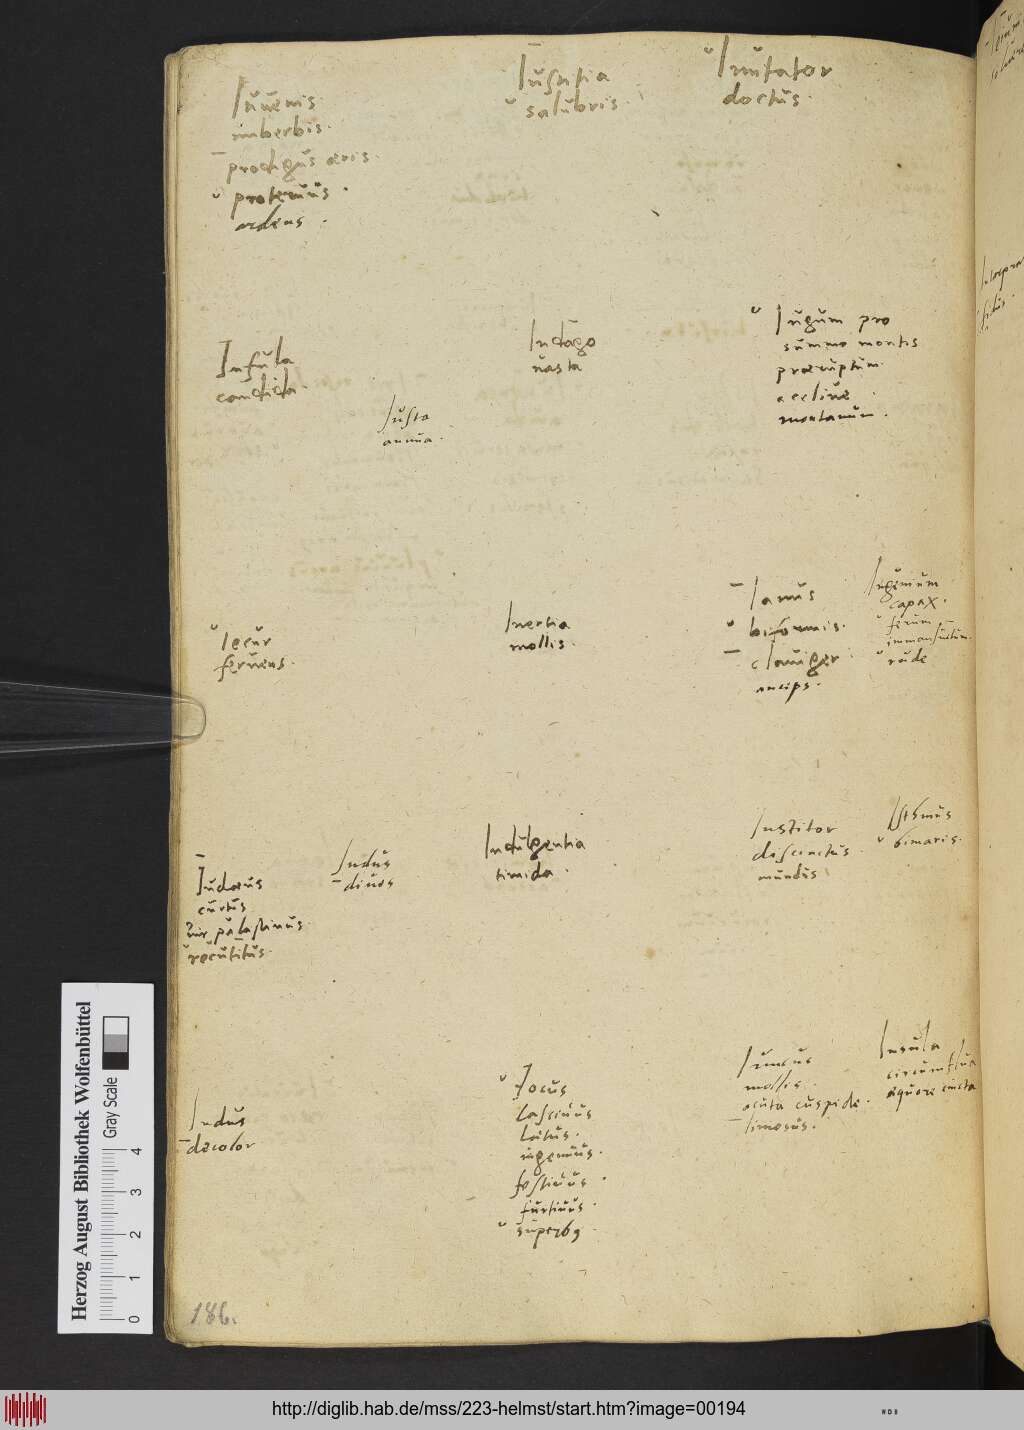 Iuuenis
imberbis.
prodigus aeris.
proteruus.
ardens.
Iustitia
salubris.
Imitator
doctus.
Insula
candida.
Iusta
annua.
Indago
uasta
Iugum pro
summo montis
praeruptum.
accliue.
montanum.
Iecur
feruens.
Inertia
mollis.
Ianus
biformis.
clauiger
anceps.
Ingenium
capax.
ferum
immansuetum.
rude
Iudaeus
curtus
uir palastinus
recutitus.
Indus
diues
Indulgentia
timida.
Institor
discinctus.
mundus
Isthmus
bimaris.
Indus
decolor
Iocus
lasciuus
latus.
ingenuus.
festiuus.
furtiuus.
superbus.
Iuncus
mollis.
acuta cuspide.
limosus.
Insula
circumflua
aequore cincta
186.
Herzog August Bibliothek Wolfenbüttel
Gray Scale
0 1 2 3 4
http://diglib.hab.de/mss/223-helmst/start.htm?image=00194